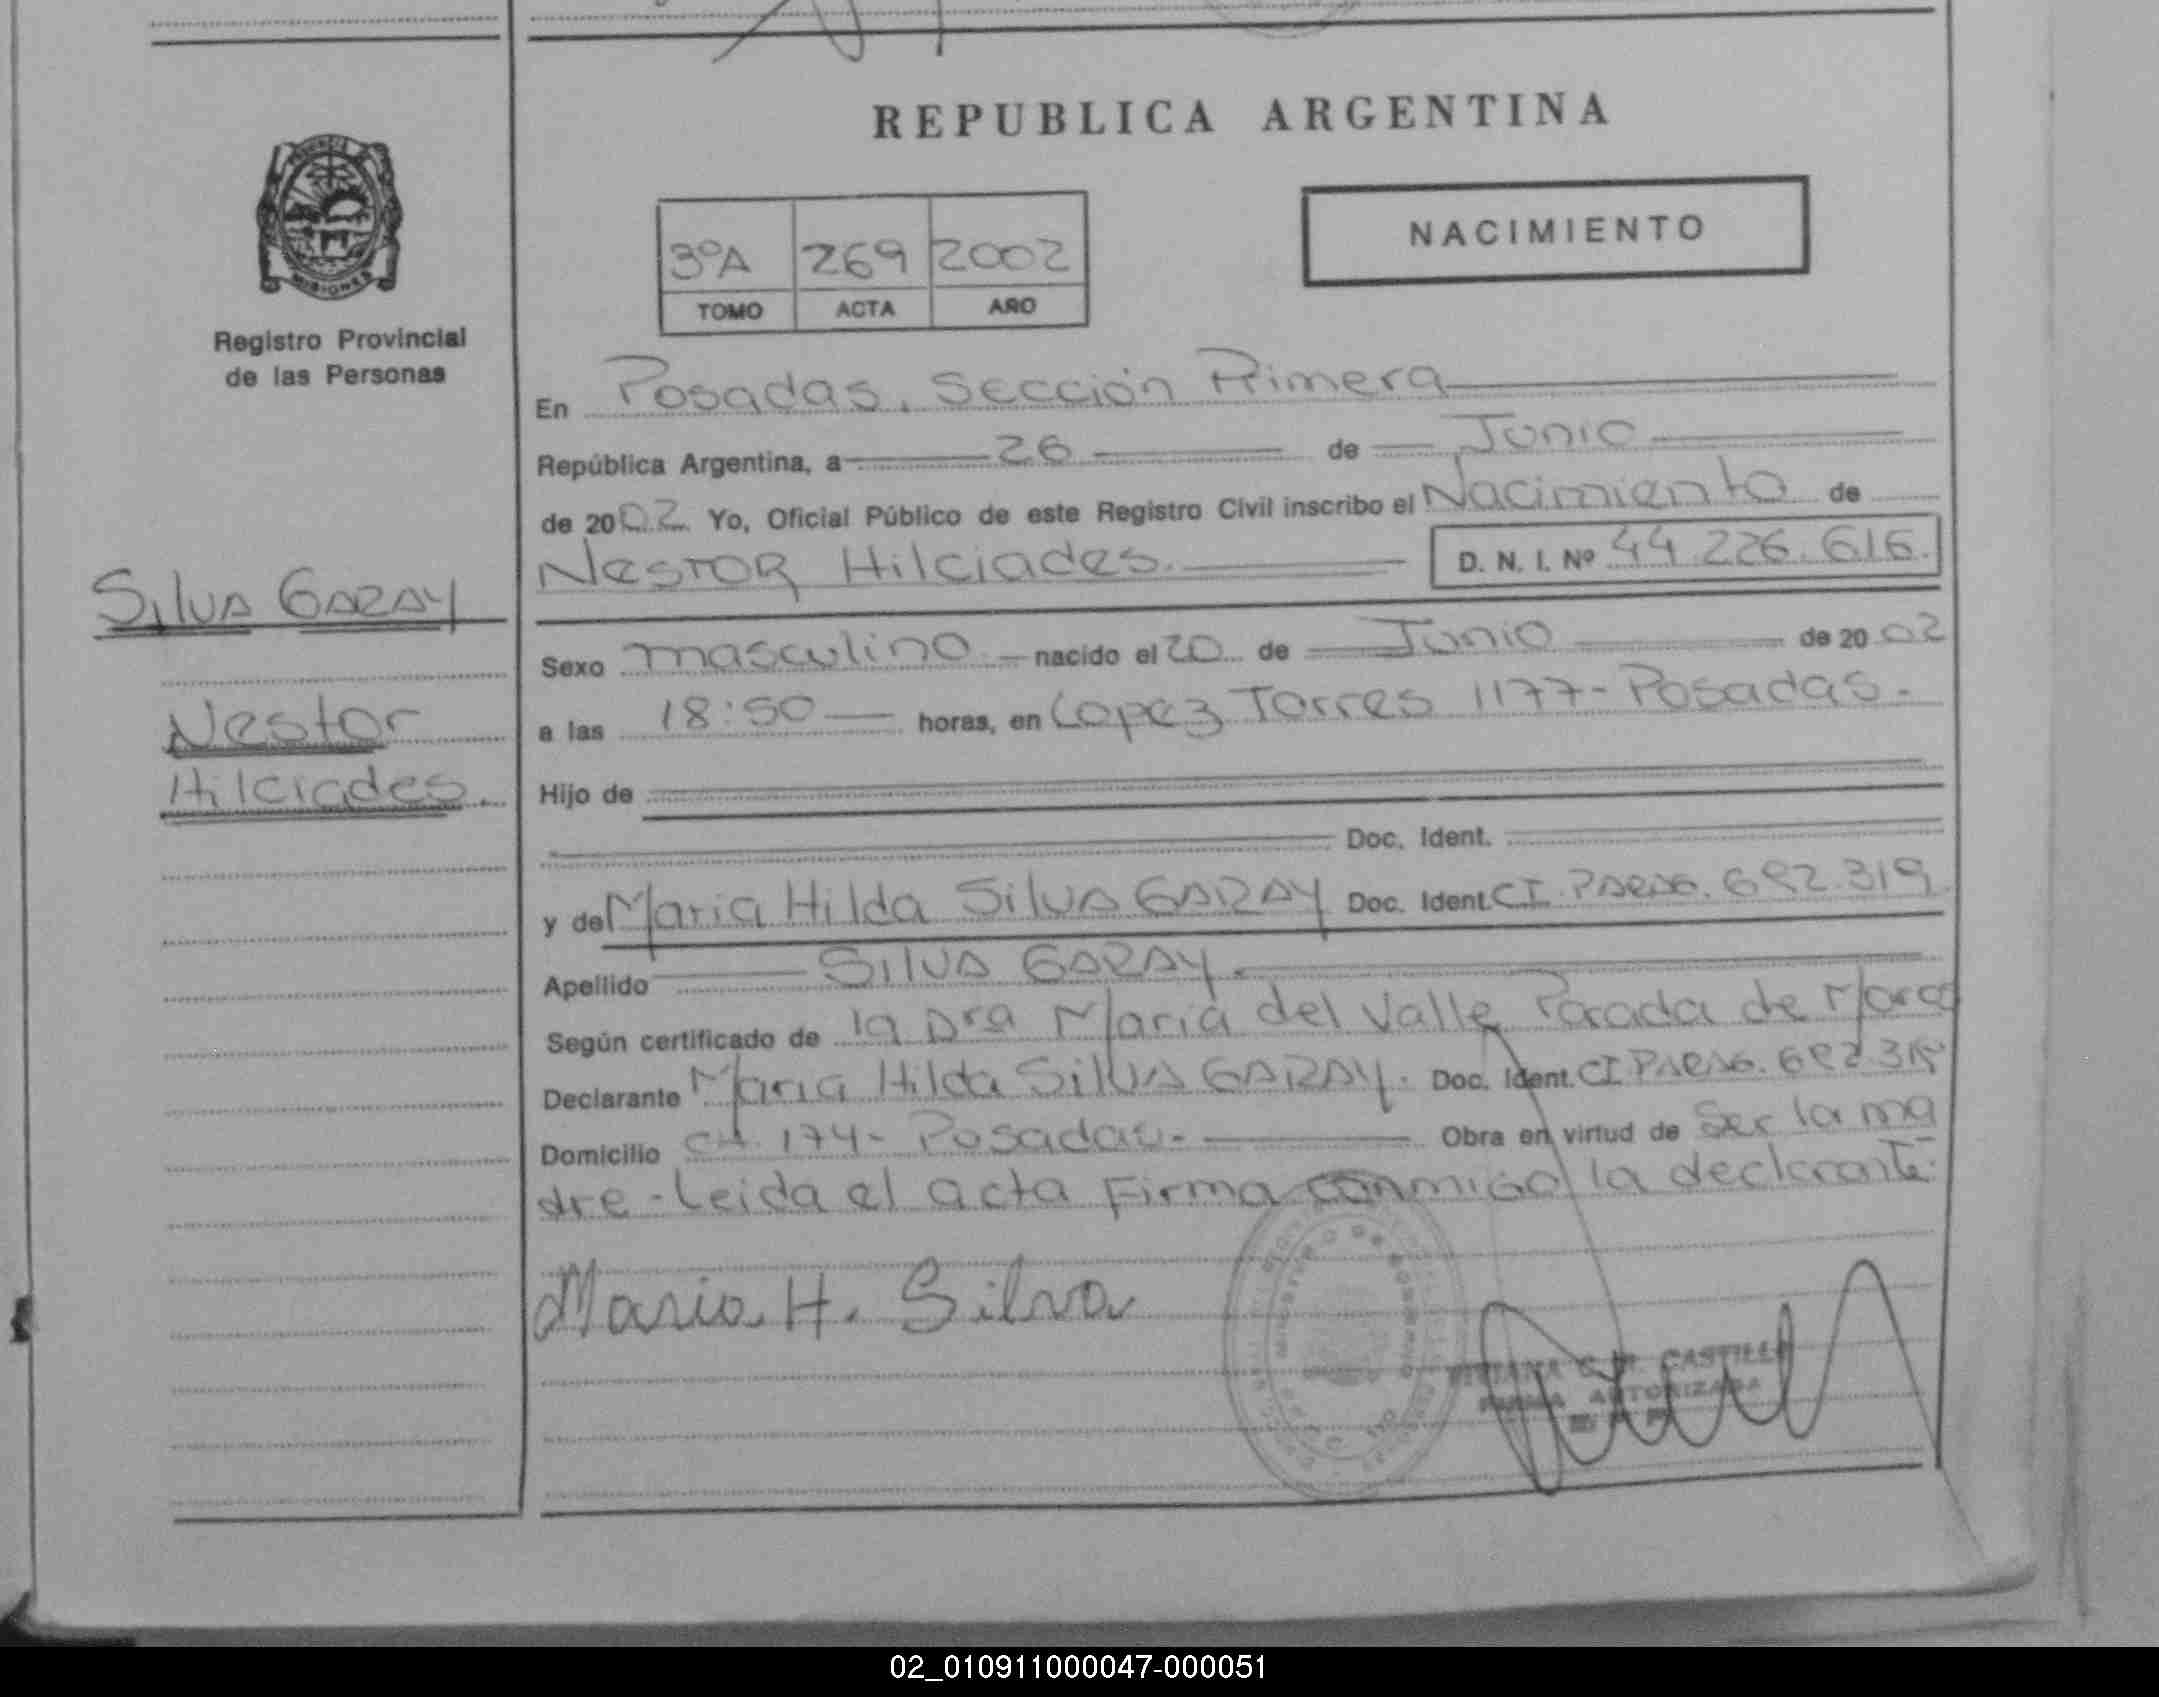 REPUBLICA ARGENTINA
PROVINCIA DE
MISIONES
Registro Provincial
de las Personas
3ºA 269 2002
TOMO ACTA AÑO
NACIMIENTO
En Posadas, Sección Primera
República Argentina, a 26 de Junio
de 2002 Yo, Oficial Público de este Registro Civil inscribo el Nacimiento de
NESTOR Hilciades. D. N. I. Nº 44.226.616.
SILVA GARAY
Nestor
Hilciades.
Sexo masculino nacido el 20 de Junio de 2002
a las 18:50 horas, en Lopez Torres 1177- Posadas.
Hijo de
Doc. Ident.
y de Maria Hilda SILVA GARAY Doc. Ident. CI. PARAG. 692.319
Apellido SILVA GARAY.
Según certificado de la Dra Maria del Valle Parada de
Declarante Maria Hilda SILVA GARAY. Doc. Ident. CI PARAG.
Domicilio CH. 174- Posadas.- Obra en virtud de Ser la ma
dre - Leida el acta Firma conmigo la declarante.
Maria H. Silva
CASTILLO
FIRMA AUTORIZADA
02_010911000047-000051